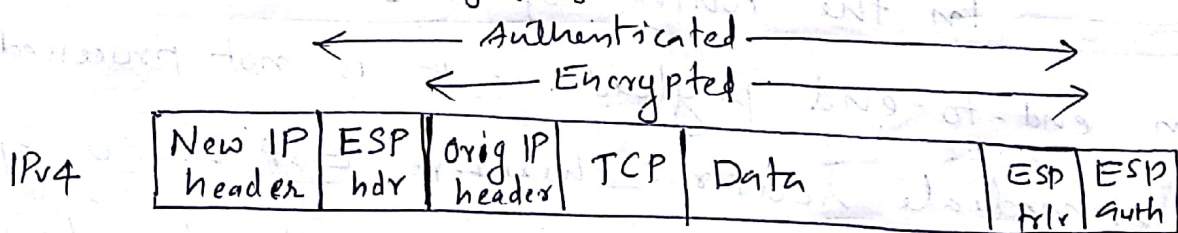 Authenticated
Encrypted
IPv4
New IP header
ESP hdr
Orig IP header
TCP
Data
ESP trlr
ESP auth